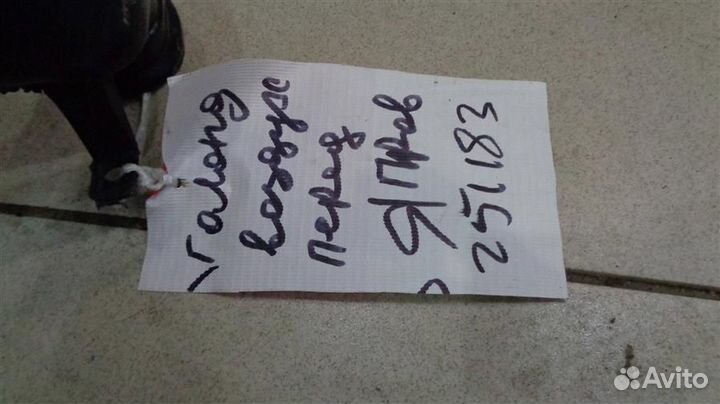 Галонд
воздух
перед
Я Прав
251183
Avito